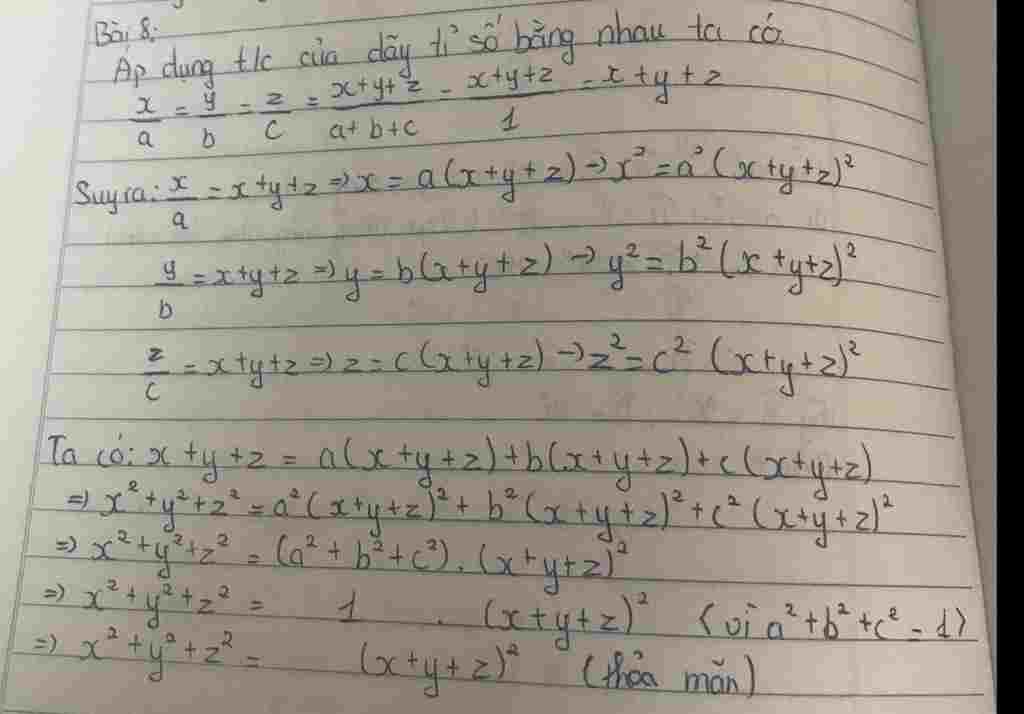 Bài 8:
Áp dụng t/c của dãy tỉ số bằng nhau ta có.
x/a = y/b = z/c = x+y+z/a+b+c = x+y+z/1 = x+y+z
Suy ra: x/a = x+y+z => x = a(x+y+z) -> x² = a²(x+y+z)²
y/b = x+y+z => y = b(x+y+z) -> y² = b²(x+y+z)²
z/c = x+y+z => z = c(x+y+z) -> z² = c² (x+y+z)²
Ta có: x+y+z = a(x+y+z)+b(x+y+z)+c(x+y+z)
=> x²+y²+z² = a²(x+y+z)² + b²(x+y+z)² + c²(x+y+z)²
=> x²+y²+z² = (a²+b²+c²).(x+y+z)²
=> x²+y²+z² = 1 . (x+y+z)² (vì a²+b²+c² = 1)
=> x²+y²+z² = (x+y+z)² (thỏa mãn)